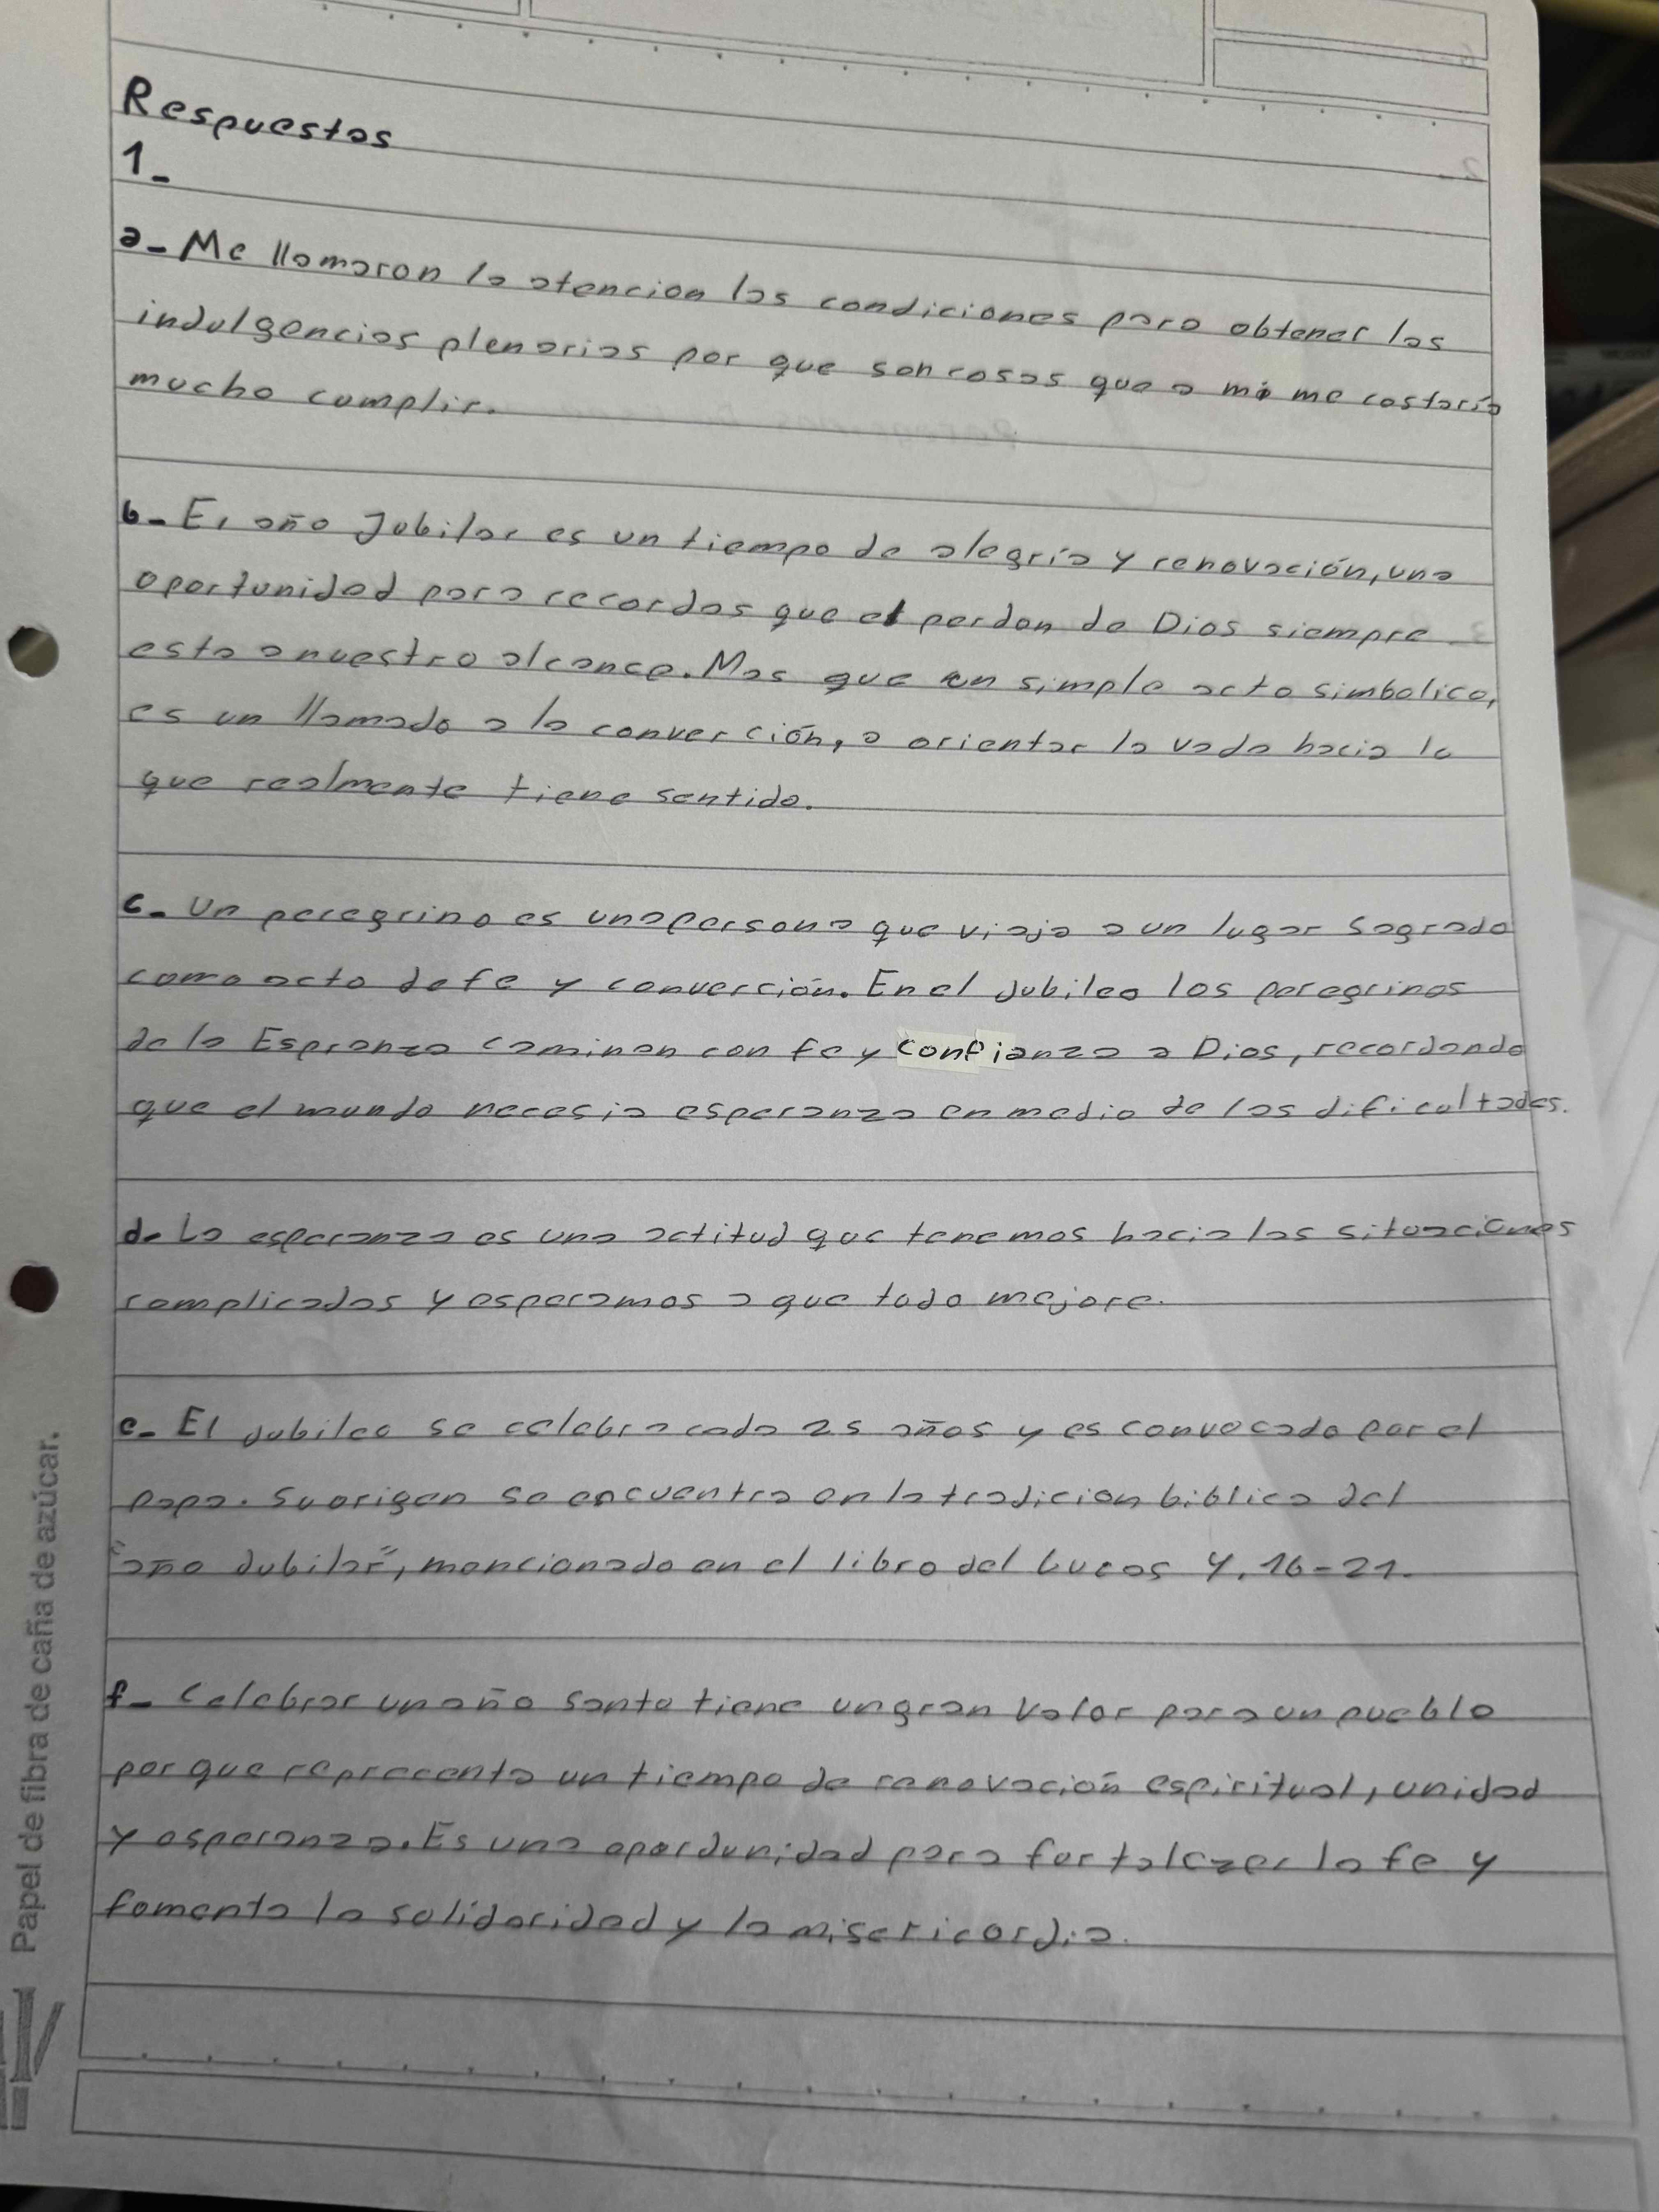 Respuestas
1_
a_ Me llamaron la atencion las condiciones para obtener las
indulgencias plenarias por que son cosas que a mi me costaría
mucho cumplir.
b_ El año Jubilar es un tiempo de alegría y renovación, una
oportunidad para recordas que el perdon de Dios siempre
esta a nuestro alcance. Mas que un simple acto simbolico,
es un llamado a la converción, a orientar la vada hacia lo
que realmente tiene sentido.
c_ Un peregrino es una persona que viaja a un lugar Sagrado
como acto de fe y converción. En el Jubileo los peregrinos
de la Espranza caminan con fe y confianza a Dios, recordando
que el mundo necesia esperanza en medio de las dificultades.
d_ La esperanza es una actitud que tenemos hacia las situaciones
complicadas y esperamos a que todo mejore.
e_ El Jubileo se celebra cada 25 años y es convocado por el
papa. Su origen se encuentra en la tradicion biblica del
"año Jubilar", mencionado en el libro del Lucas 4, 16-21.
f_ Celebrar un año Santo tiene un gran valor para un pueblo
por que reprecenta un tiempo de renovación espiritual, unidad
y esperanza. Es una opordunidad para fortalezer la fe y
fomenta la solidaridad y la misericordia.
Papel de fibra de caña de azúcar.